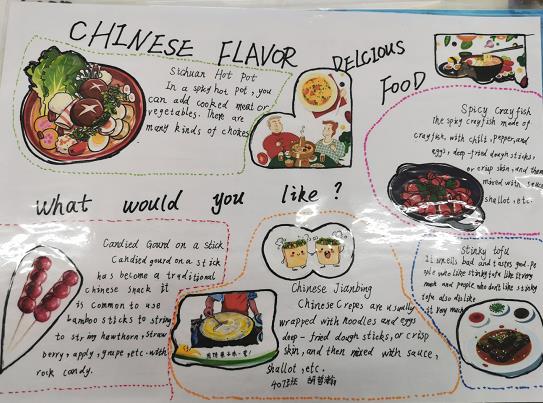 CHINESE FLAVOR DELCIOUS
FOOD
Sichuan Hot Pot
In a spicy hot pot, you
can add cooked meat or
vegetables. There are
many kinds of chokes
Spicy Crayfish
The spicy crayfish made of
crayfish, with chili, pepper, and
eggs, deep-fried dough sticks,
or crisp skin, and then
mixed with sauce
shallot, etc.
What would you like?
Candied Gourd on a stick
Candied gourd on a stick
has become a traditional
chinese snack it
is common to use
bamboo sticks to string
to string hawthorn, straw
berry, apply, grape, etc. with
rock candy.
Chinese Jianbing
Chinese Crepes are usually
wrapped with noodles and eggs
deep-fried dough sticks, or crisp
skin, and then mixed with sauce,
shallot, etc.
Stinky tofu
It smells bad and tastes good. Peo
ple who like stinky tofu like it very
much and people who don't like stinky
tofu also dislike
it very much